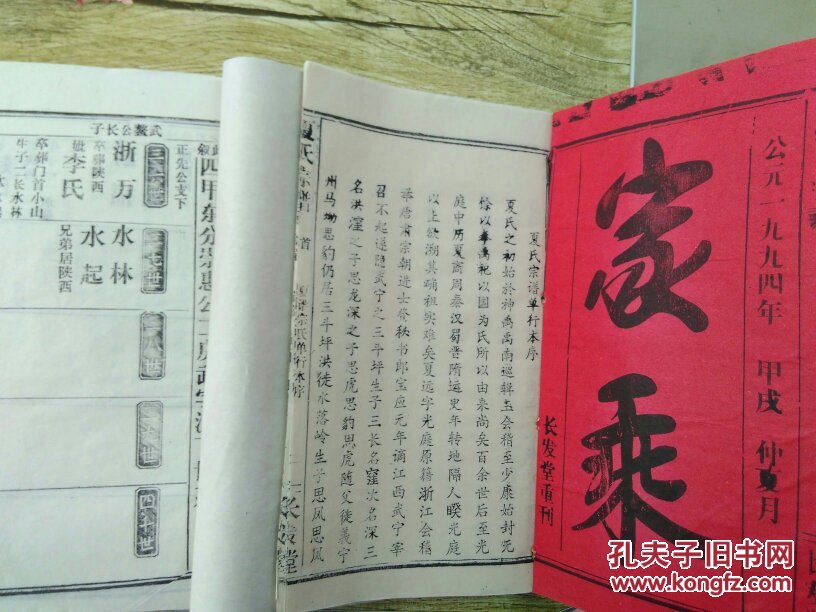 公元一九九四年 甲戌 仲夏月
家乘
长发堂重刊
夏氏宗谱单行本序
夏氏之初始於神禹禹南巡辑玉会稽至少康始封无
馀以奉禹祀以国为氏所以由来尚矣百余世后至光
庭中历夏商周秦汉蜀晋隋运史年转地隔人暌光庭
以上欲溯其嵋祖实难矣夏远字光庭原籍浙江会稽
举唐肃宗朝进士登秘书郎宝应元年谪江西武宁宰
召不起遂隐武宁之三斗坪生子三长名窪次名深三
名洪漥之子思龙深之子思虎思豹思虎随父徒義宁
州马坳思豹仍居三斗坪洪徒水落岭生子思风思凤
武鳌公长子
三十六世
浙万
娥李氏
卒葬陕西
卒葬门首小山
生子二长水林
三十七世
水林
水起
兄弟居陕西
三十八世
三十九世
四十世
正先公支下
孔夫子旧书网
www.kongfz.com